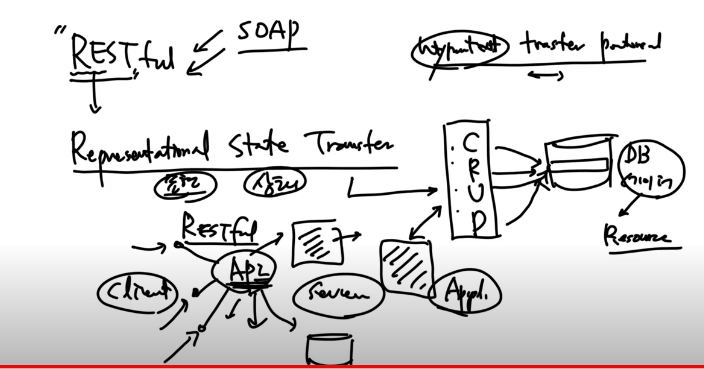 "RESTful" SOAP
hypertext transfer protocol
Representational State Transfer
상태
C
R
U
D
DB
Resource
RESTful
API
Client
Server
Appl.